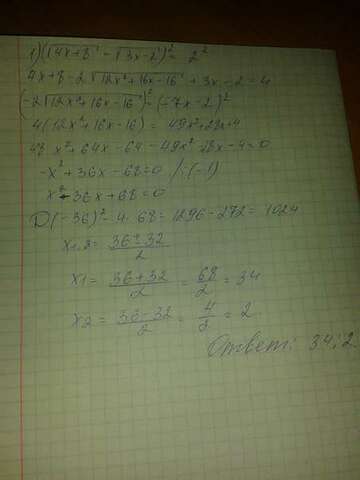 1) (√4x+8 - √3x-2)² = 2²
4x+8-2√12x²+16x-16 + 3x-2=4
(-2√12x²+16x-16)² = (-7x-2)²
4(12x²+16x-16) = 49x²+28x+4
48x²+64x-64-49x²-28x-4=0
-x²+36x-68=0 /:(-1)
x²-36x+68=0
D(-36)²-4·68=1296-272=1024
x1,2= 36±32/2
x1= 36+32/2 = 68/2 = 34
x2= 36-32/2 = 4/2 = 2
Ответ: 34; 2